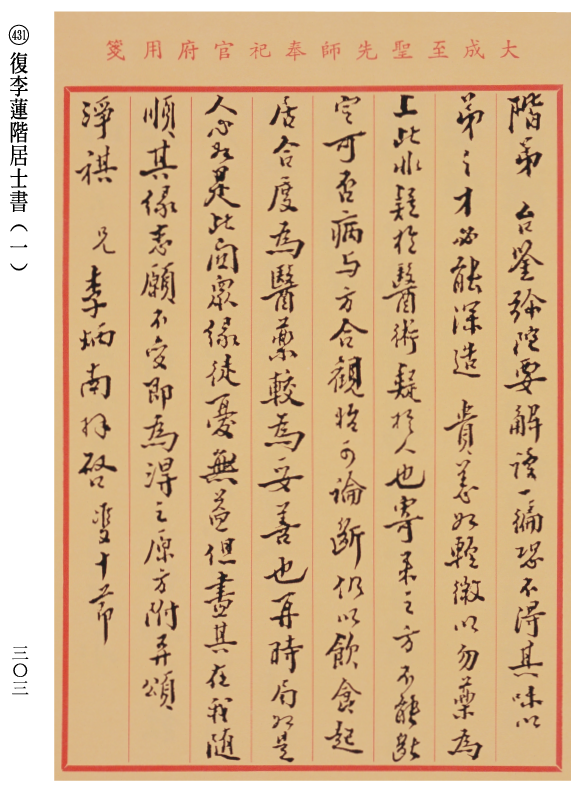 大成至聖先師奉祀官府用箋
階弟 台鑒弥陀要解讀一編恐不得其味以
弟之才必能深造 貴恙如輕微以勿藥為
上此非疑於醫術疑於人也寄來之方不能斷
定可否病与方合觀始可論斷仍以飲食起
居合度為醫藥較為妥善也再時局如是
人心如是此間眾緣徒憂無益但盡其在我隨
順其緣志願不变即為得之原方附頌
淨祺 兄李炳南拜啓雙十節
431 復李蓮階居士書（一）
三〇三